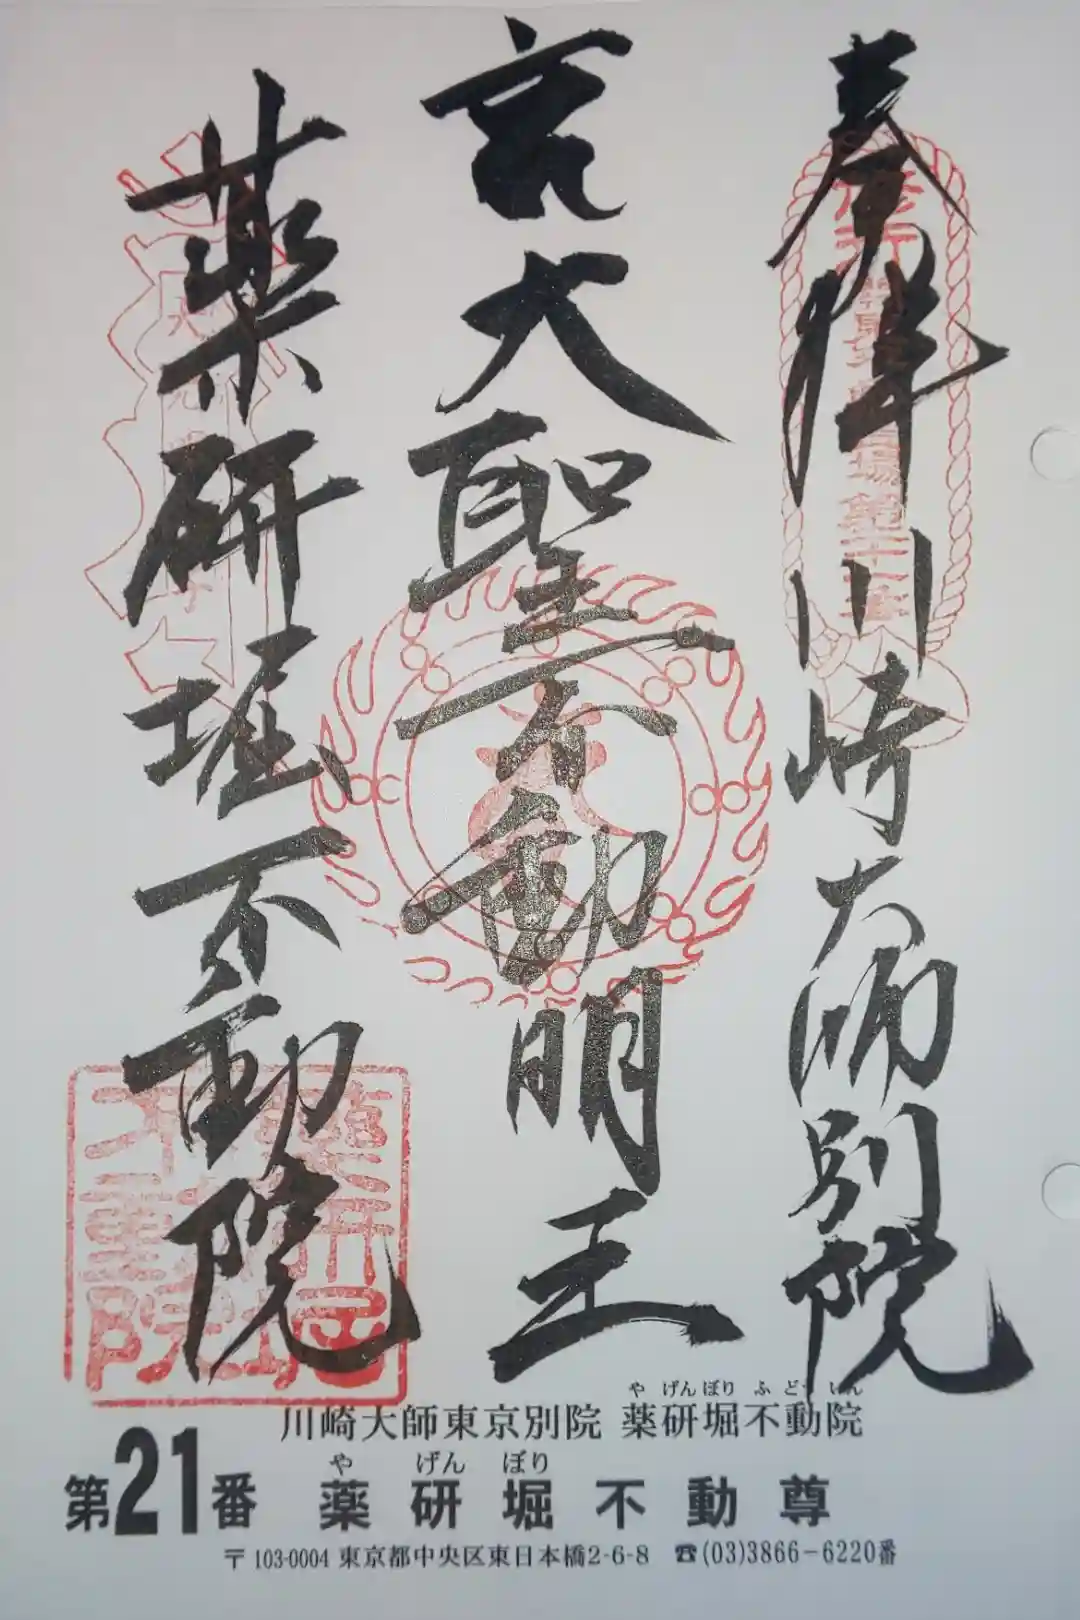 奉拝 川崎大師別院
大聖不動明王
薬研堀不動院
や げんぼり ふどういん
川崎大師東京別院 薬研堀不動院
や げん ぼり
第21番 薬研堀不動尊
〒103-0004 東京都中央区東日本橋2-6-8 ☎(03)3866-6220番